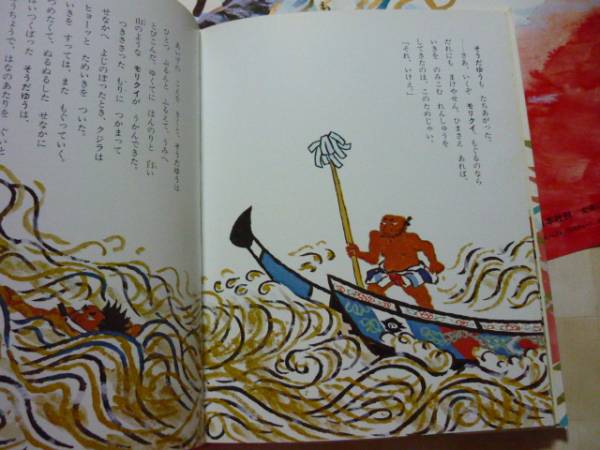 そうだゆうも たちあがった。
――さあ、いくぞ モリクイ。もぐるのなら
だれにも まけやせん。ひまさえ あれば、
いきを のみこむ れんしゅうを
してきたのは、このためじゃい。
「それ、いけえ。」
そうだゆうは
ひとつ、ぶるんと ふるえて、うみへ
とびこんだ。ゆくてに ほんのりと 白い
山のような モリクイが うかんできた。
つきささった もりに つかまって
せなかへ よじのぼったとき、クジラは
ヒョーッと ためいきを ついた。
いきを すっては、また もぐっていく。
つめたくて、ぬるぬるした せなかに
はいつくばった そうだゆうは、
はなのあたりを ぐいと